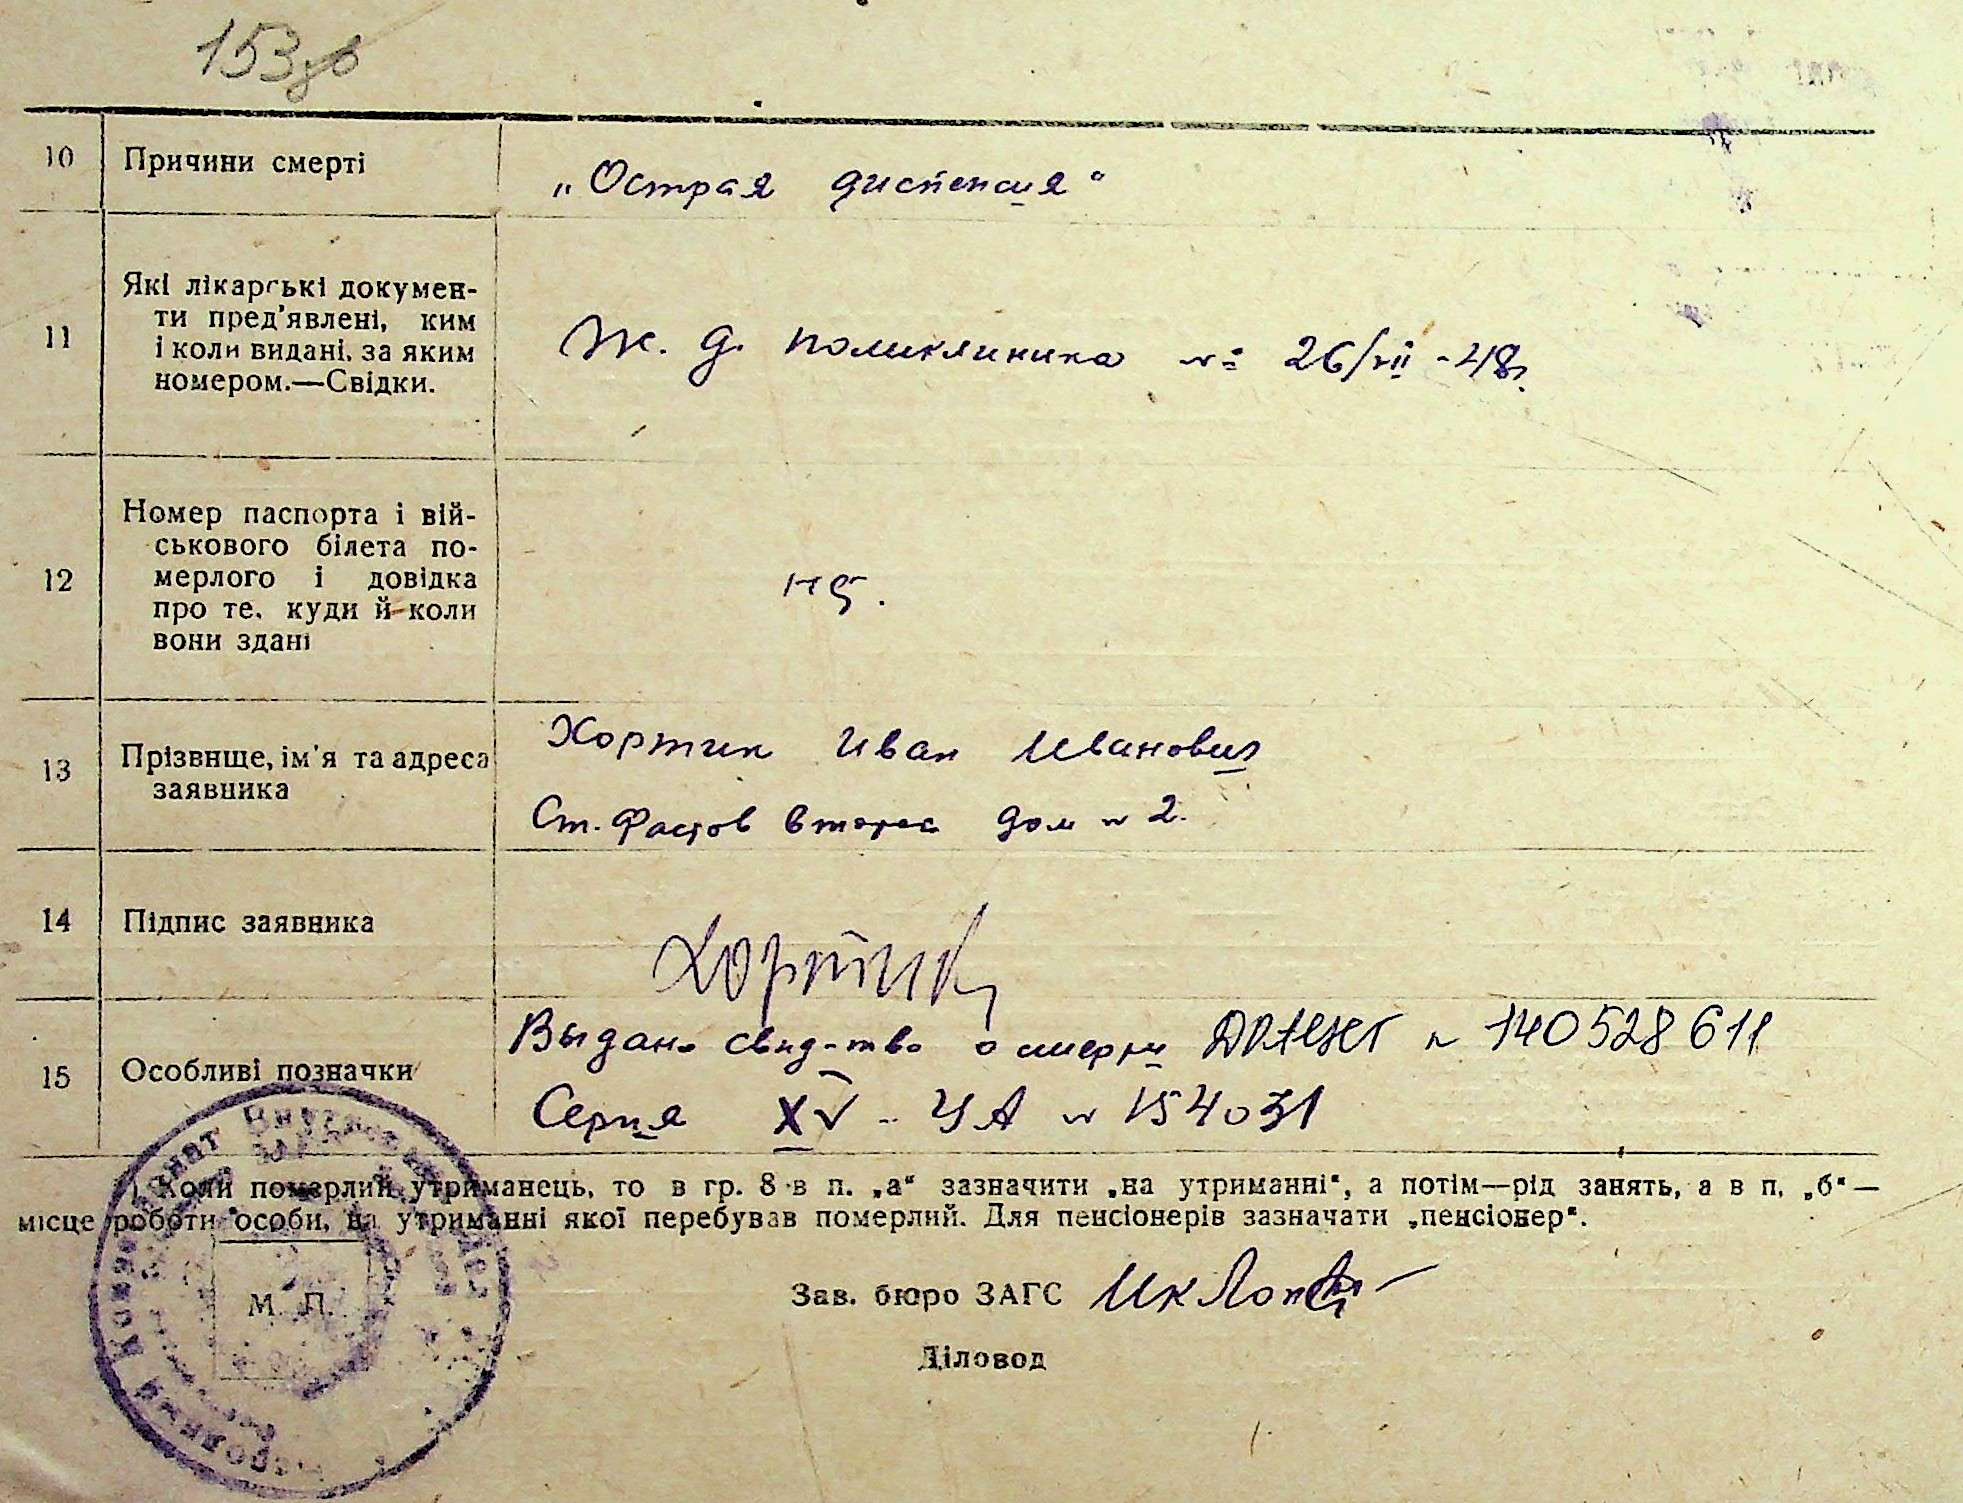 153зв
10 Причини смерті „Острая диспепсия“
11 Які лікарські докумен-
ти пред'явлені, ким
і коли видані, за яким
номером.—Свідки.
Ж. д. поликлиника № 26/VII - 48г.
12 Номер паспорта і вій-
ськового білета по-
мерлого і довідка
про те, куди й коли
вони здані
13 Прізвище, ім'я та адреса
заявника
Хортик Иван Иванович
Ст. Фастов второй дом № 2.
14 Підпис заявника Хортик
15 Особливі позначки
Выдано свид-тво о смерти № 140528611
Серия XV - УА № 154031
Коли померлий утриманець, то в гр. 8 в п. „а“ зазначити „на утриманні“, а потім—рід занять, а в п. „б“—
місце роботи особи, на утриманні якої перебував померлий. Для пенсіонерів зазначати „пенсіонер“.
М. П.
Зав. бюро ЗАГС
Діловод
Народный Комиссариат Внутренних Дел